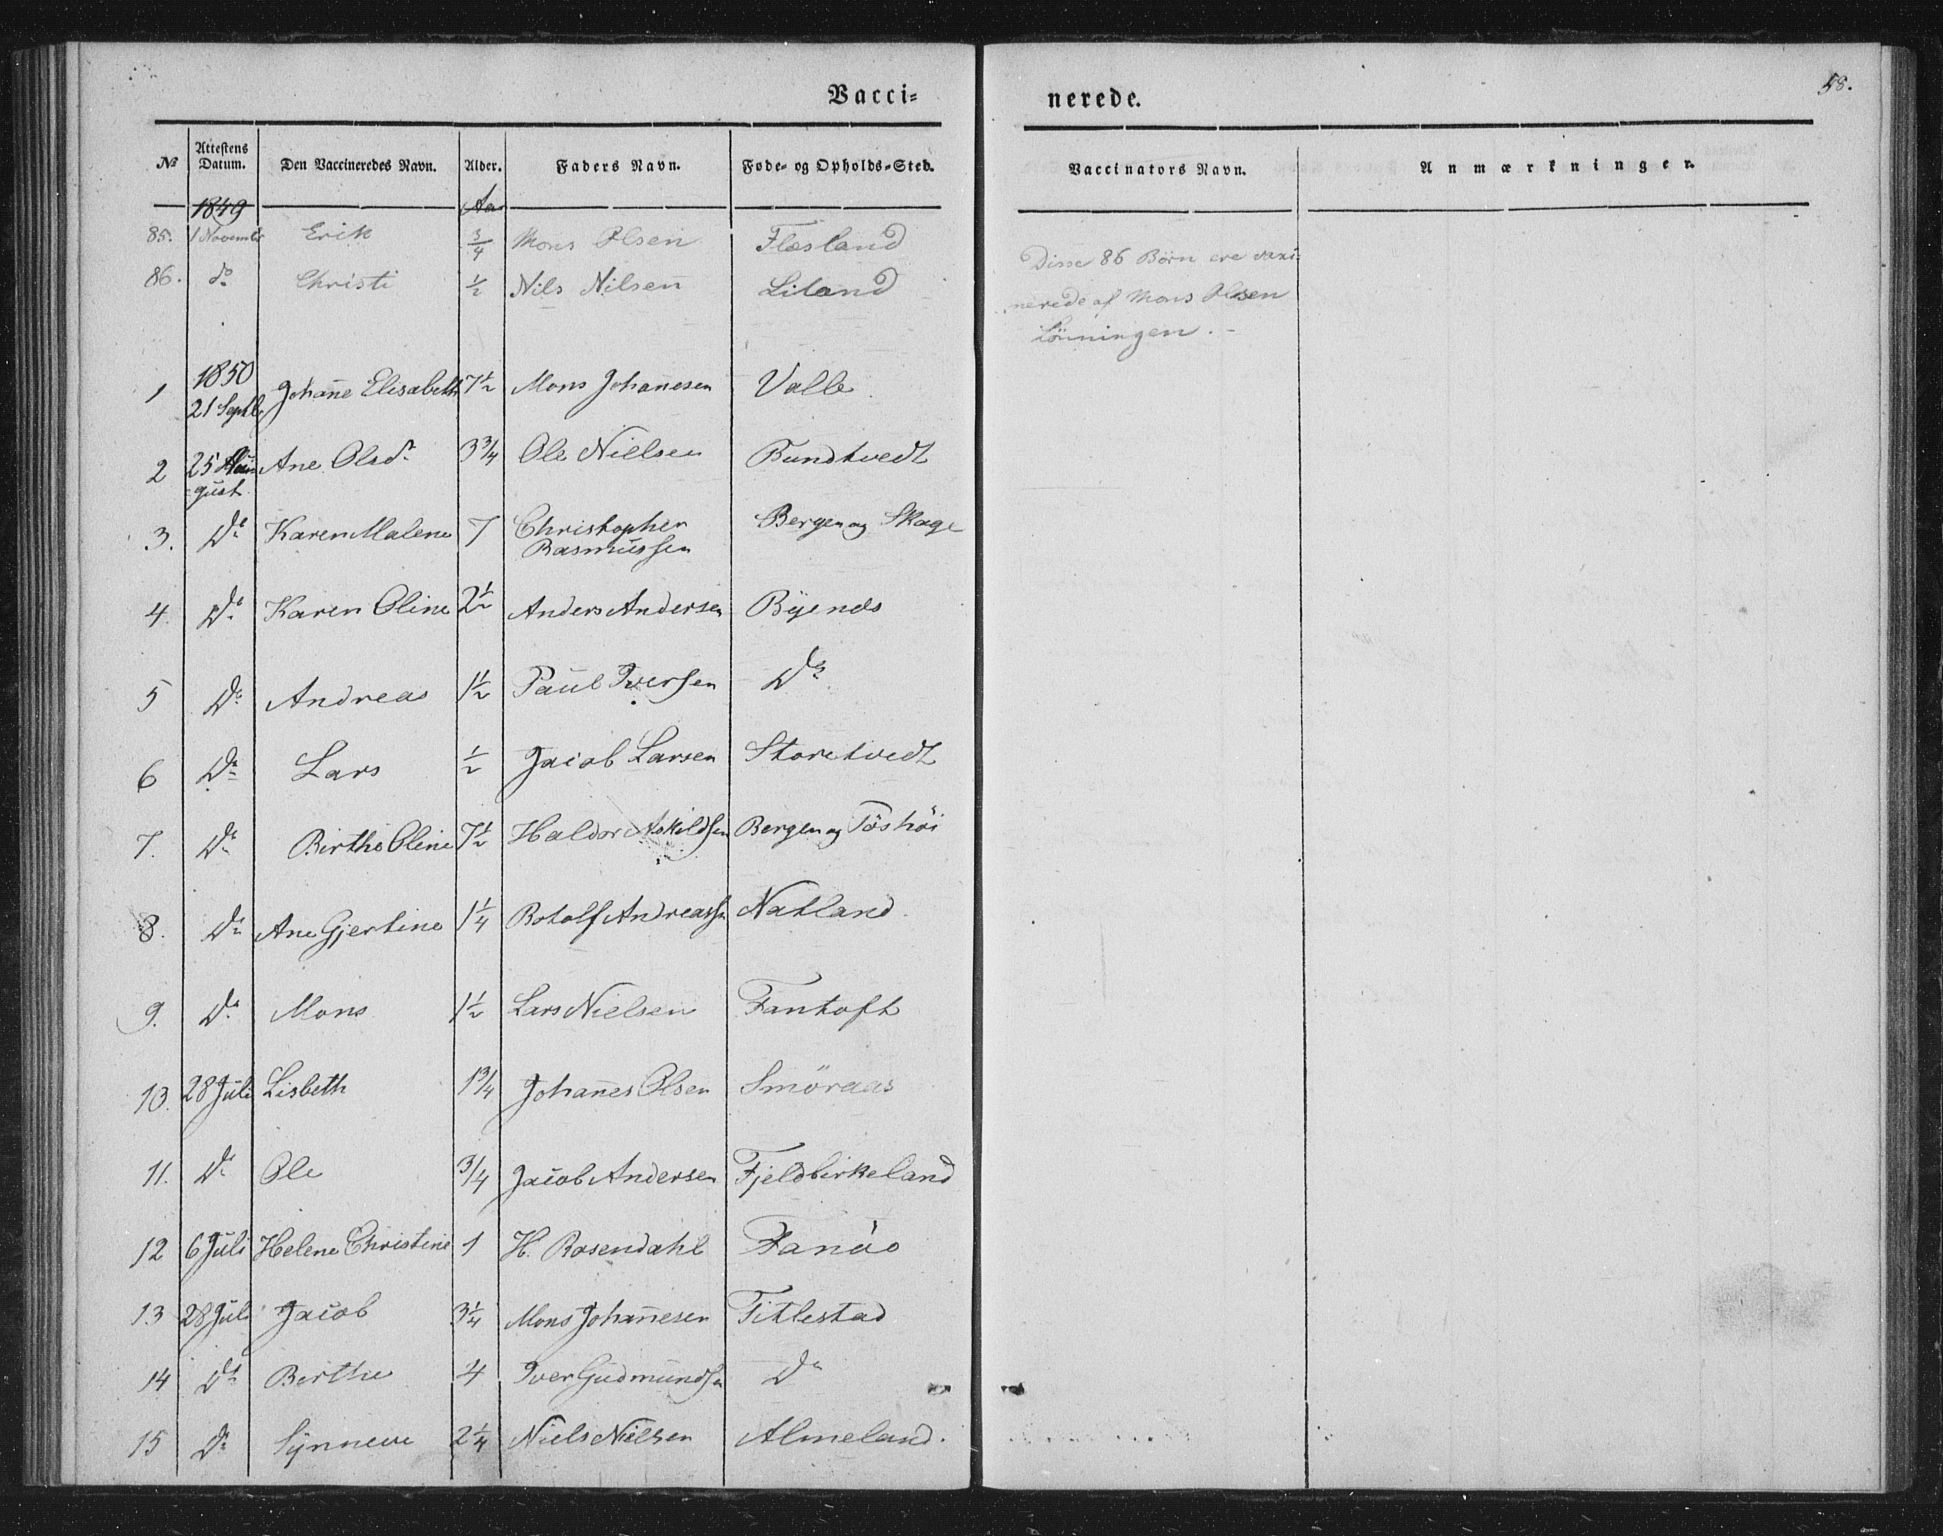 Vacci=
nerede.
58.
No Attestens Datum. Den Vaccineredes Navn. Alder. Faders Navn. Føde- og Opholds-Sted. Vaccinators Navn. Anmærkninger.
1849 Aar
85. 1 November Erik 3/4 Mons Olsen Flesland
86. do Christi 1/2 Nils Nilsen Liland
Disse 86 Børn ere vaxi-
nerede af Mons Olsen
Lönningen. -
1 1850 21 Septb Johanne Elisabeth 7 1/2 Mons Johanesen Valle
2 25 Au- gust Ane Olsdr 3 3/4 Ole Nielsen Bundtvedt
3. Do Karen Malene 7 Christopher Rasmussen Bergen og Skage
4. Do Karen Oline 2 1/2 Anders Andersen Byenes
5 Do Andreas 1 1/2 Paul Iversen Do
6 Do Lars 1/2 Jacob Larsen Storetvedt
7. Do Birthe Oline 7 1/2 Haldor Askildsen Bergen og
8. Do Ane Gjertine 1 1/4 Botolf Andreassen Natland
9. Do Mons 1 1/2 Lars Nielsen Fantoft
10. 28 Juli Lisbeth 1 3/4 Johannes Olsen Smöraas
11. Do Ole 3/4 Jacob Andersen Fjeldbirkeland
12 6 Juli Helene Christine 1 H. Rosendahl Fanöo
13 28 Juli Jacob 3 1/4 Mons Johannesen Titlestad
14 Do Berthe 4 Iver Gudmundsen Do
15 Do Synneve 2 1/4 Niels Nielsen Almeland.